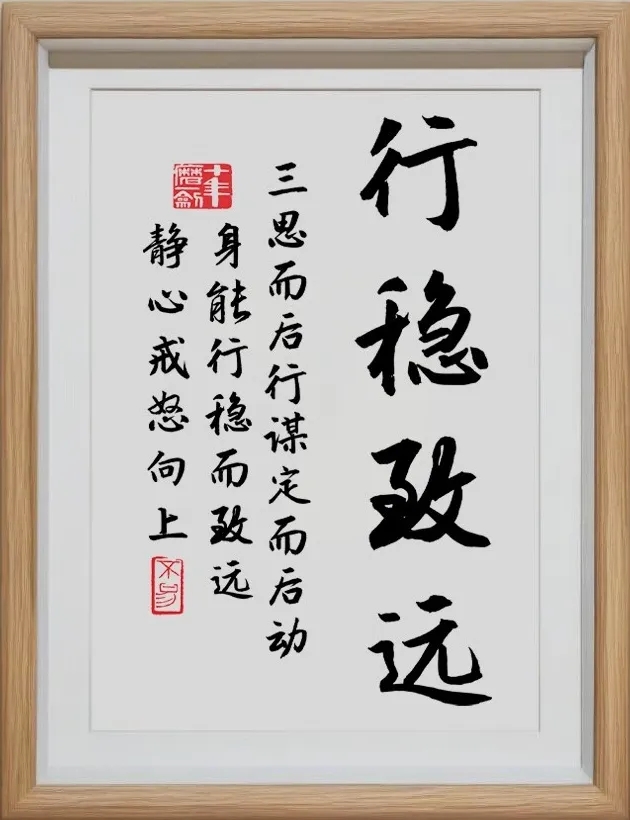 行稳致远
三思而后行谋定而后动
身能行稳而致远
静心戒怒向上
十年磨剑